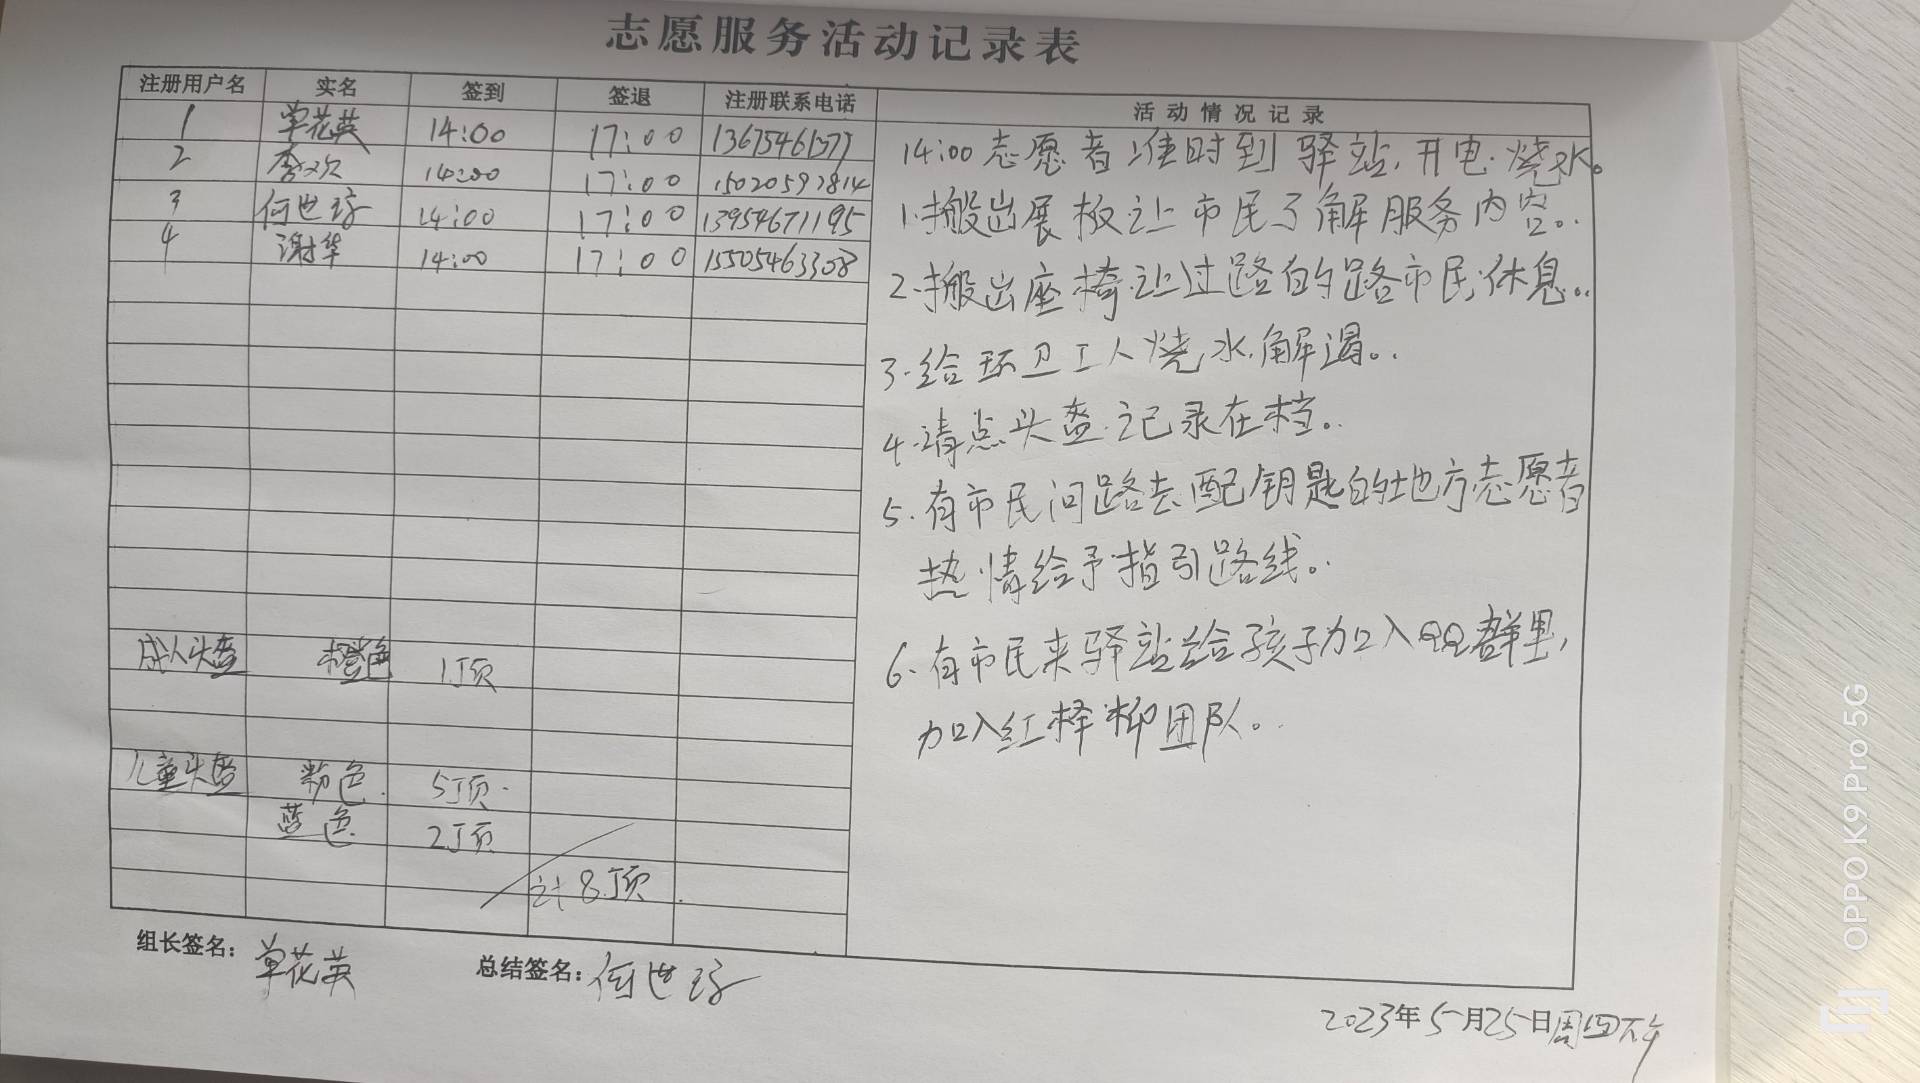 志愿服务活动记录表
注册用户名 实名 签到 签退 注册联系电话 活动情况记录
1 单花英 14:00 17:00
2 14:00 17:00 15020592814
3 何世 14:00 17:00 13954671195
4 谢华 14:00 17:00 15505463308
成人头盔 橙色 1顶
儿童头盔 粉色 5顶
蓝色 2顶
计8顶
14:00志愿者准时到驿站,开电.烧水。
1.搬出展板让市民了解服务内容。
2.搬出座椅.让过路的路市民休息。
3.给环卫工人烧水.解渴。
4.清点头盔.记录在档。
5.有市民问路去配钥匙的地方志愿者
热情给予指引路线。
6.有市民来驿站给孩子加入QQ群里,
加入红柽柳团队。
组长签名: 单花英 总结签名: 何世
2023年5月25日周四下午
OPPO K9 Pro 5G